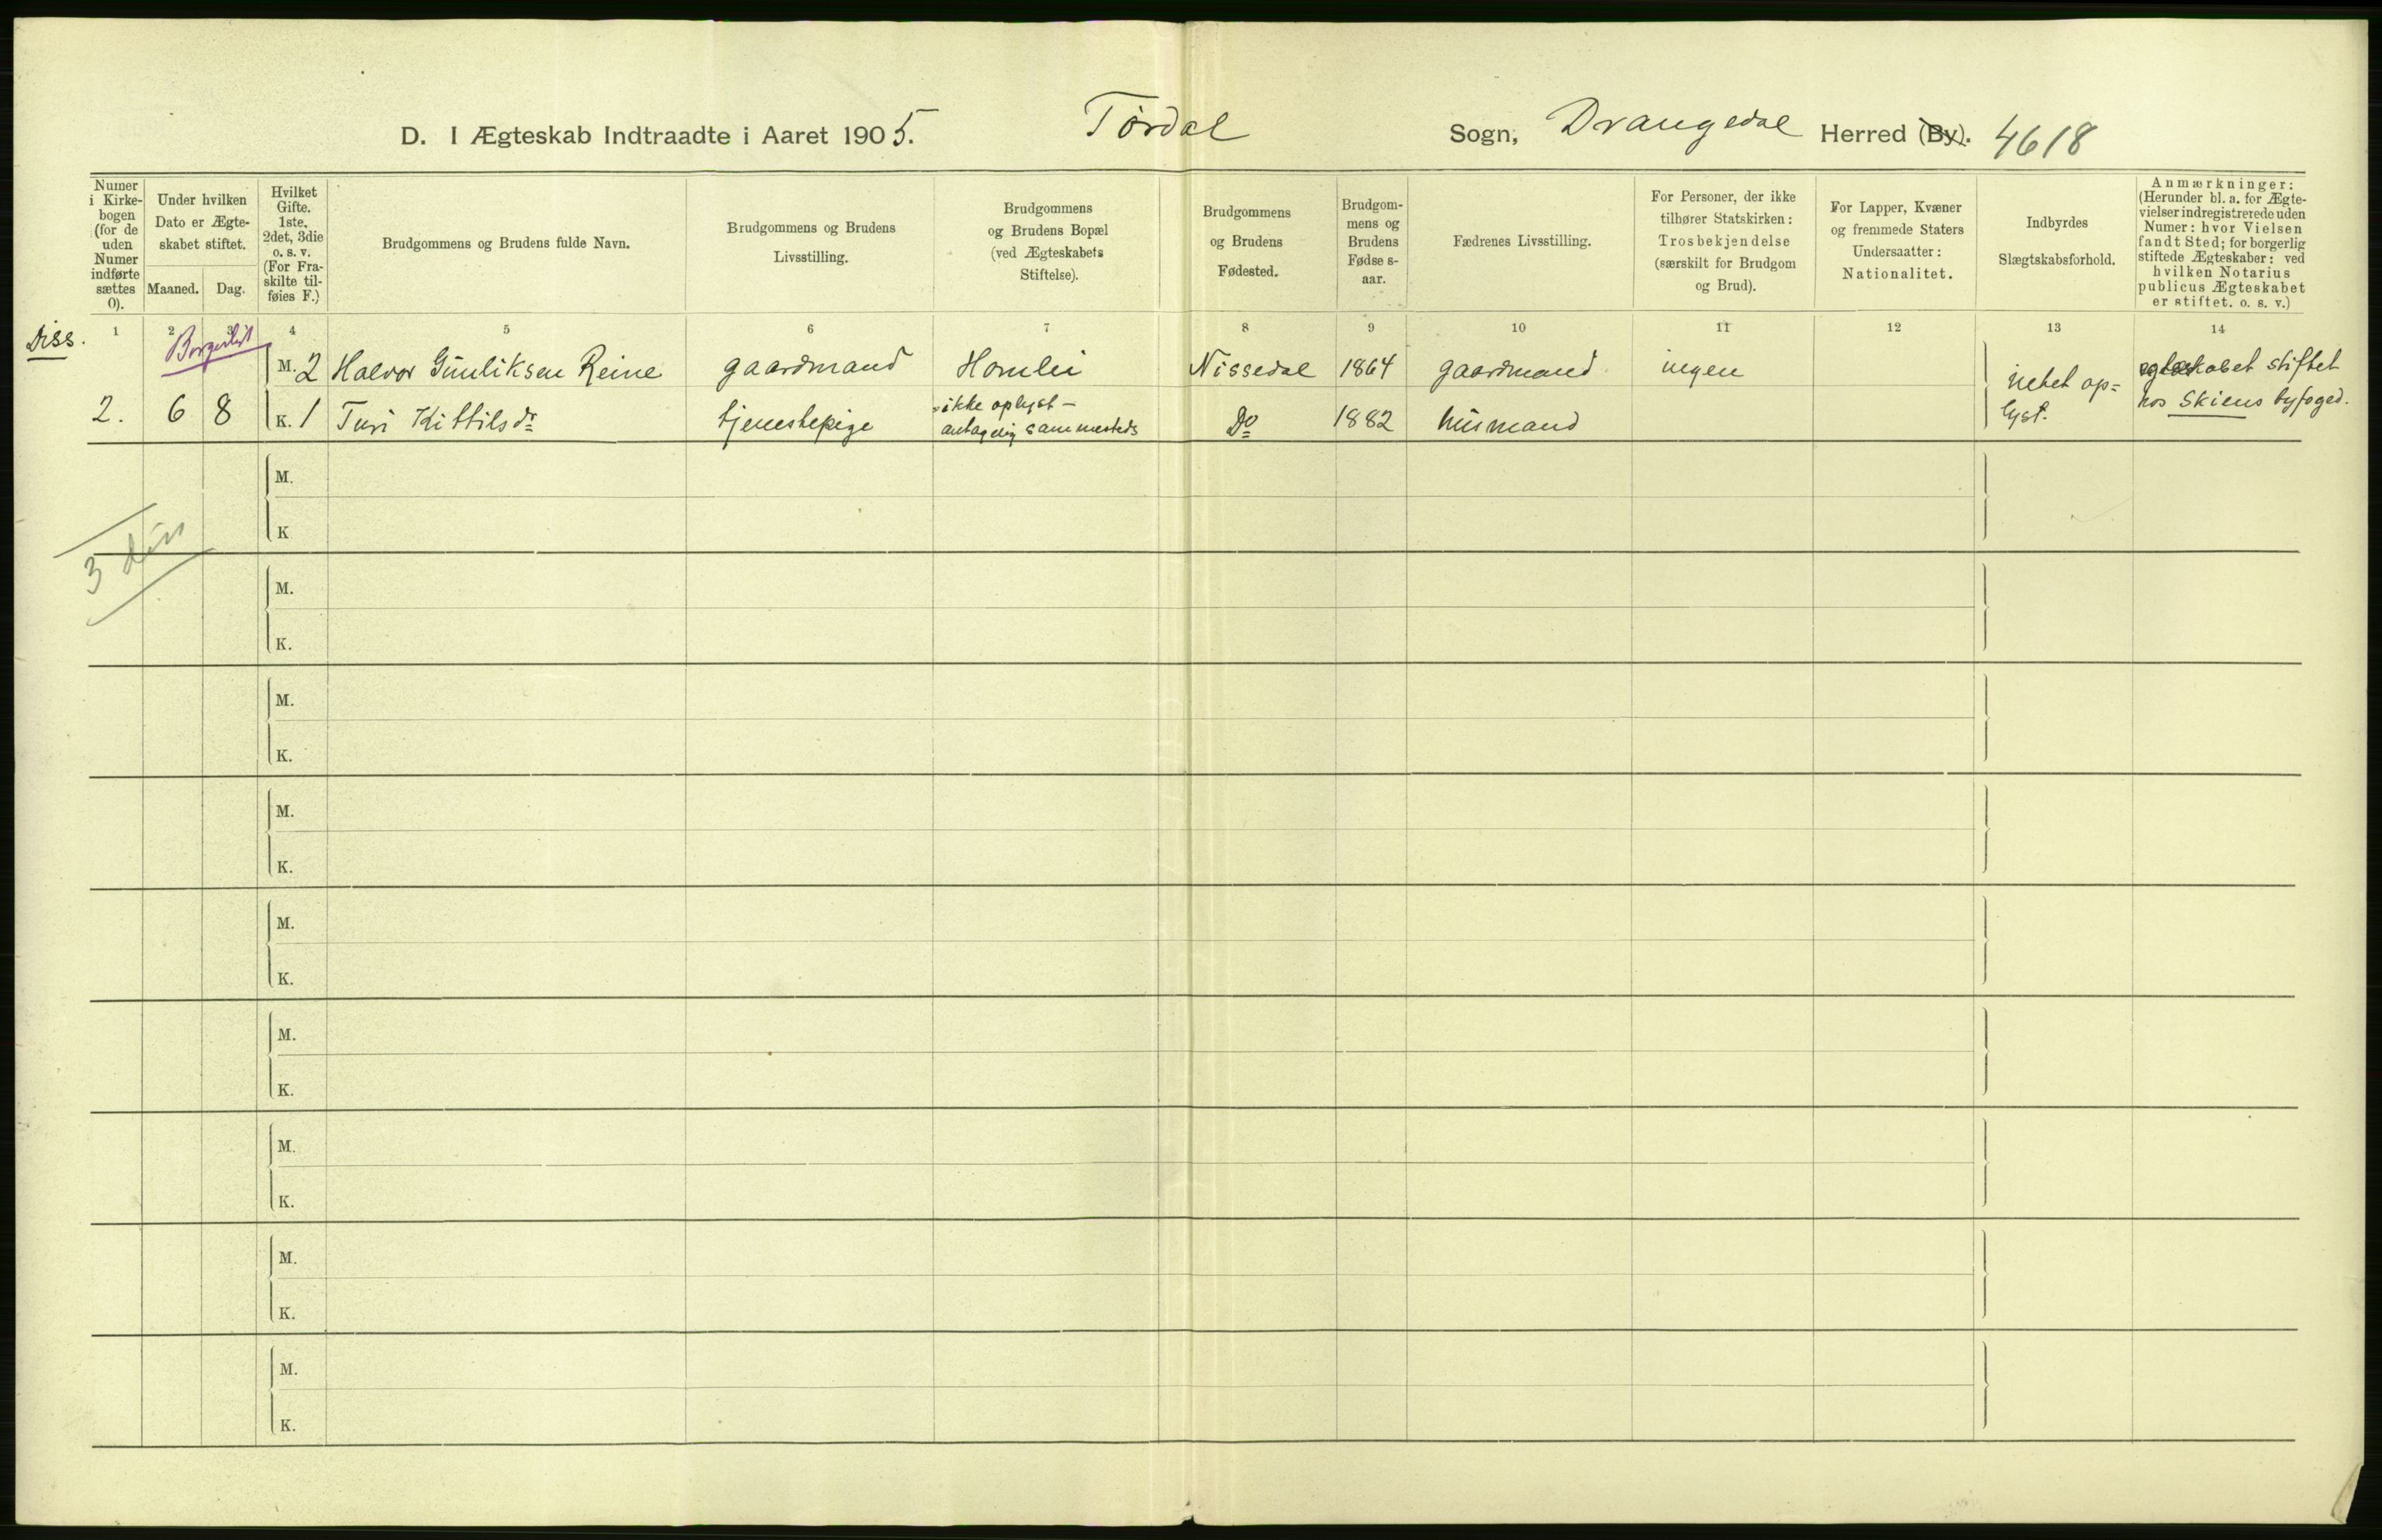 D. I Ægteskab Indtraadte i Aaret 1905. Tørdal Sogn, Drangedal Herred (By). 4618
Numer i Kirkebogen (for de uden Numer indførte sættes 0).
Under hvilken Dato er Ægteskabet stiftet.
Maaned. Dag.
Hvilket Gifte. 1ste, 2det, 3die o. s. v. (For Fraskilte tilføies F.)
Brudgommens og Brudens fulde Navn.
Brudgommens og Brudens Livsstilling.
Brudgommens og Brudens Bopæl (ved Ægteskabets Stiftelse).
Brudgommens og Brudens Fødested.
Brudgommens og Brudens Fødselsaar.
Fædrenes Livsstilling.
For Personer, der ikke tilhører Statskirken: Trosbekjendelse (særskilt for Brudgom og Brud).
For Lapper, Kvæner og fremmede Staters Undersaatter: Nationalitet.
Indbyrdes Slægtskabsforhold.
Anmærkninger: (Herunder bl. a. for Ægtevielser indregistrerede uden Numer: hvor Vielsen fandt Sted; for borgerlig stiftede Ægteskaber: ved hvilken Notarius publicus Ægteskabet er stiftet. o. s. v.)
1 2 3 4 5 6 7 8 9 10 11 12 13 14
Diss. Borgerligt
M. 2 Halvor Gunliksen Reine gaardmand Homlei Nissedal 1864 gaardmand ingen
2. 6 8 K. 1 Turi Kittilsdr tjenestepige ikke oplyst - antagelig sammesteds Do 1882 husmand
intet oplyst.
egteskabet stiftet
hos Skiens byfoged.
M.
K
3 diss
M.
K.
M.
K.
M.
K.
M.
K.
M.
K.
M.
K.
M.
K.
M.
K.